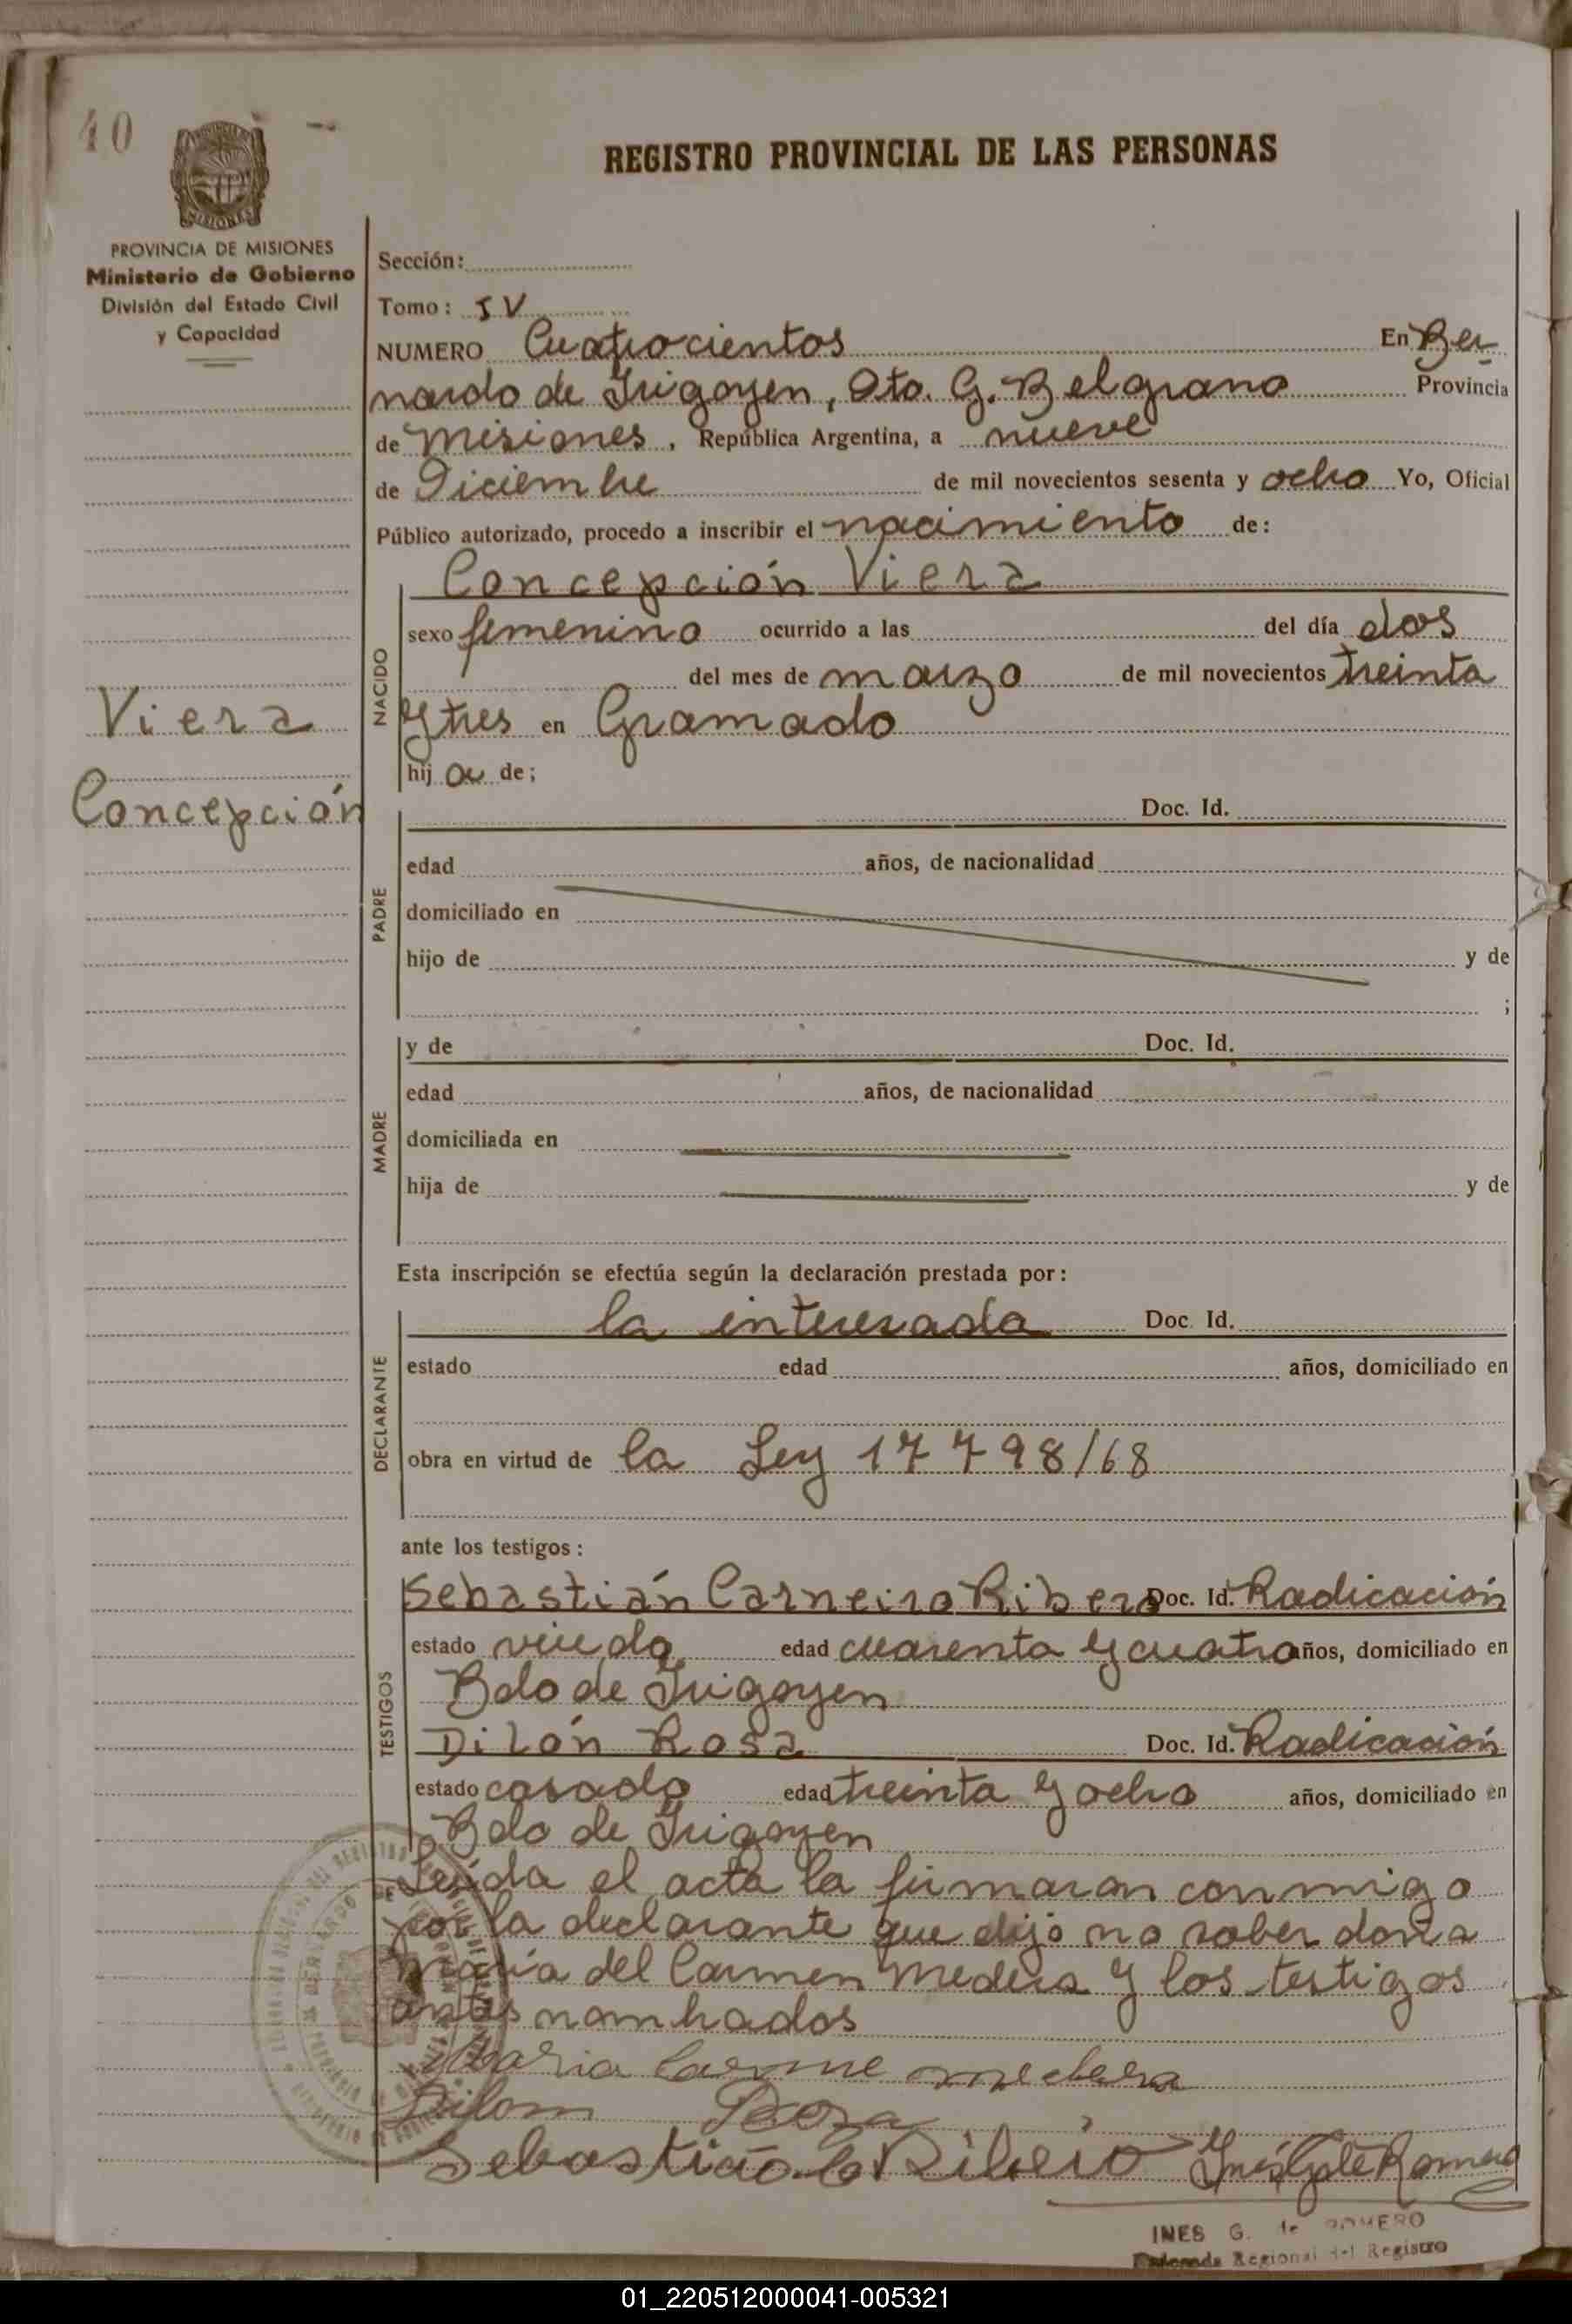 40
REGISTRO PROVINCIAL DE LAS PERSONAS
PROVINCIA DE MISIONES
Ministerio de Gobierno
División del Estado Civil
y Capacidad
Viera
Concepción
Sección:
Tomo: IV
NUMERO Cuatrocientos En Ber
nardo de Irigoyen, Dto. G. Belgrano Provincia
de Misiones, República Argentina, a nueve
de Diciembre de mil novecientos sesenta y ocho Yo, Oficial
Público autorizado, procedo a inscribir el nacimiento de:
NACIDO
Concepción Viera
sexo femenino ocurrido a las del día dos
del mes de marzo de mil novecientos treinta
y tres en Gramado
hija de;
PADRE
Doc. Id.
edad años, de nacionalidad
domiciliado en
hijo de y de
;
MADRE
y de Doc. Id.
edad años, de nacionalidad
domiciliada en
hija de y de
Esta inscripción se efectúa según la declaración prestada por:
DECLARANTE
la interesada Doc. Id.
estado edad años, domiciliado en
obra en virtud de la Ley 17798/68
ante los testigos:
TESTIGOS
Sebastián Carneiro Ribero Doc. Id. Radicación
estado viudo edad cuarenta y cuatro años, domiciliado en
Bdo de Irigoyen
Dilón Rosa Doc. Id. Radicación
estado casado edad treinta y ocho años, domiciliado en
Bdo de Irigoyen
Leída el acta la firmaran conmigo
por la declarante que dijo no saber doña
María del Carmen Medera y los testigos
antes nombrados
Maria Carme medera
Dilom Roza
Sebastião Ribeiro Inés Romero
INES G. de ROMERO
Regional del Registro
01_220512000041-005321